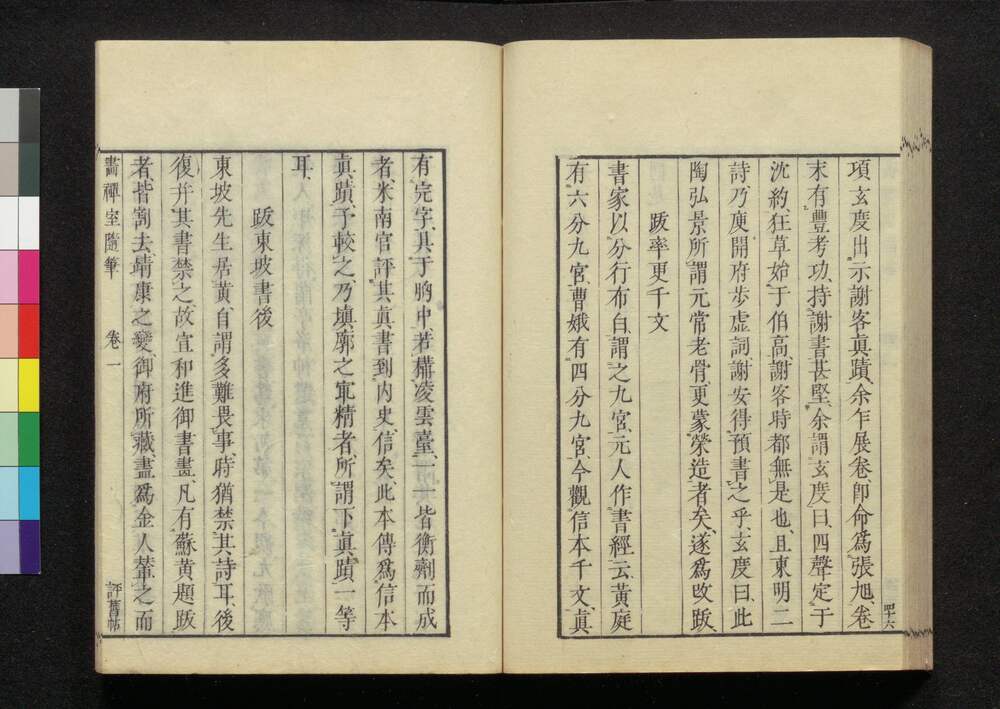 項玄度出示謝客真蹟余乍展卷卽命爲張旭卷
末有豐考功持謝書甚堅余謂玄度曰四聲定于
沈約狂草始于伯高謝客時都無是也且東明二
詩乃庾開府步虛詞謝安得預書之乎玄度曰此
陶弘景所謂元常老骨更蒙榮造者矣遂爲改跋
跋率更千文
書家以分行布白謂之九宮元人作書經云黃庭
有六分九宮曹娥有四分九宮今觀信本千文眞
四十六
有完字具于胸中若構凌雲臺一一皆衡劑而成
者米南宮評其眞書到內史信矣此本傳爲信本
眞蹟予較之乃塡廓之最精者所謂下眞蹟一等
耳
跋東坡書後
東坡先生居黃自謂多難畏事時猶禁其詩耳後
復幷其書禁之故宣和進御書畫凡有蘇黃題跋
者皆割去靖康之變御府所藏盡爲金人輦之而
畵禪室隨筆 卷一 評舊帖